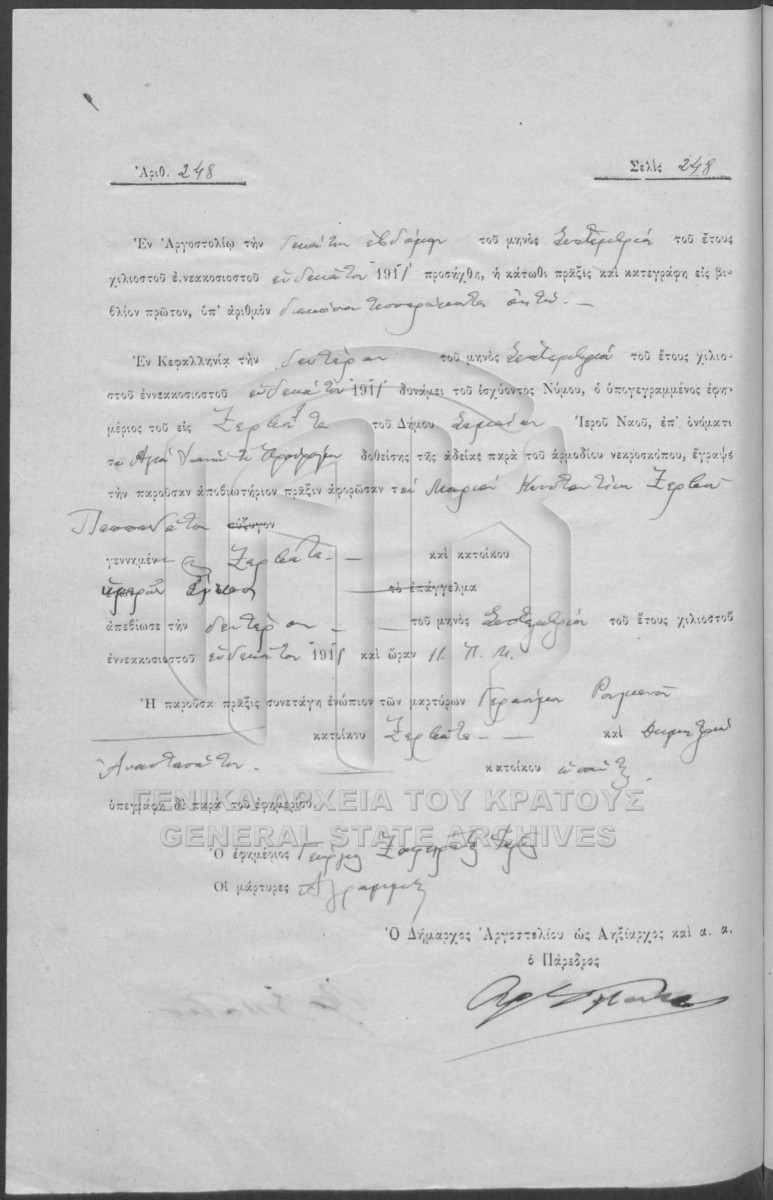 Ἀριθ. 248
Σελὶς 248
Ἐν Ἀργοστολίῳ τὴν δεκάτην ἑβδόμην τοῦ μηνὸς Σεπτεμβρίου τοῦ ἔτους
χιλιοστοῦ ἐνεακοσιοστοῦ ἑνδεκάτου 1911 προσήχθη, ἡ κάτωθι πρᾶξις καὶ κατεγράφη εἰς βι-
βλίον πρῶτον, ὑπ' ἀριθμὸν διακόσια τεσσαράκοντα ὀκτώ. —
Ἐν Κεφαλληνίᾳ τὴν δευτέραν τοῦ μηνὸς Σεπτεμβρίου τοῦ ἔτους χιλιο-
στοῦ ἐννεακοσιοστοῦ ἑνδεκάτου 1911 δυνάμει τοῦ ἰσχύοντος Νόμου, ὁ ὑπογεγραμμένος ἐφη-
μέριος τοῦ εἰς Ζερβάτα τοῦ Δήμου Σαμαίων Ἱεροῦ Ναοῦ, ἐπ' ὀνόματι
τοῦ Ἁγίου δοθείσης τῆς ἀδείας παρὰ τοῦ ἁρμοδίου νεκροσκόπου, ἔγραψε
τὴν παροῦσαν ἀποβιωτήριον πρᾶξιν ἀφορῶσαν τὴν Μαρίαν Κωνσταντίνου Ζερβοῦ
Παππαδάτου σύζυγον
γεννημένη Ζερβάτα — καὶ κατοίκου
τὸ ἐπάγγελμα
ἀπεβίωσε τὴν δευτέραν — — τοῦ μηνὸς Σεπτεμβρίου τοῦ ἔτους χιλιοστοῦ
ἐννεακοσιοστοῦ ἑνδεκάτου 1911 καὶ ὥραν 11 π. μ.
Ἡ παροῦσα πρᾶξις συνετάγη ἐνώπιον τῶν μαρτύρων Γερασίμου
κατοίκου Ζερβάτα — — καὶ Δημητρίου
Ἀναστασάτου. κατοίκου ὡσαύτως.
ὑπεγράφη δὲ παρὰ τοῦ ἐφημερίου.
ΓΕΝΙΚΑ ΑΡΧΕΙΑ ΤΟΥ ΚΡΑΤΟΥΣ
GENERAL STATE ARCHIVES
Ὁ ἐφημέριος Γεώργιος
Οἱ μάρτυρες Ἀγράμματοι
Ὁ Δήμαρχος Ἀργοστολίου ὡς Ληξίαρχος καὶ α. α.
ὁ Πάρεδρος